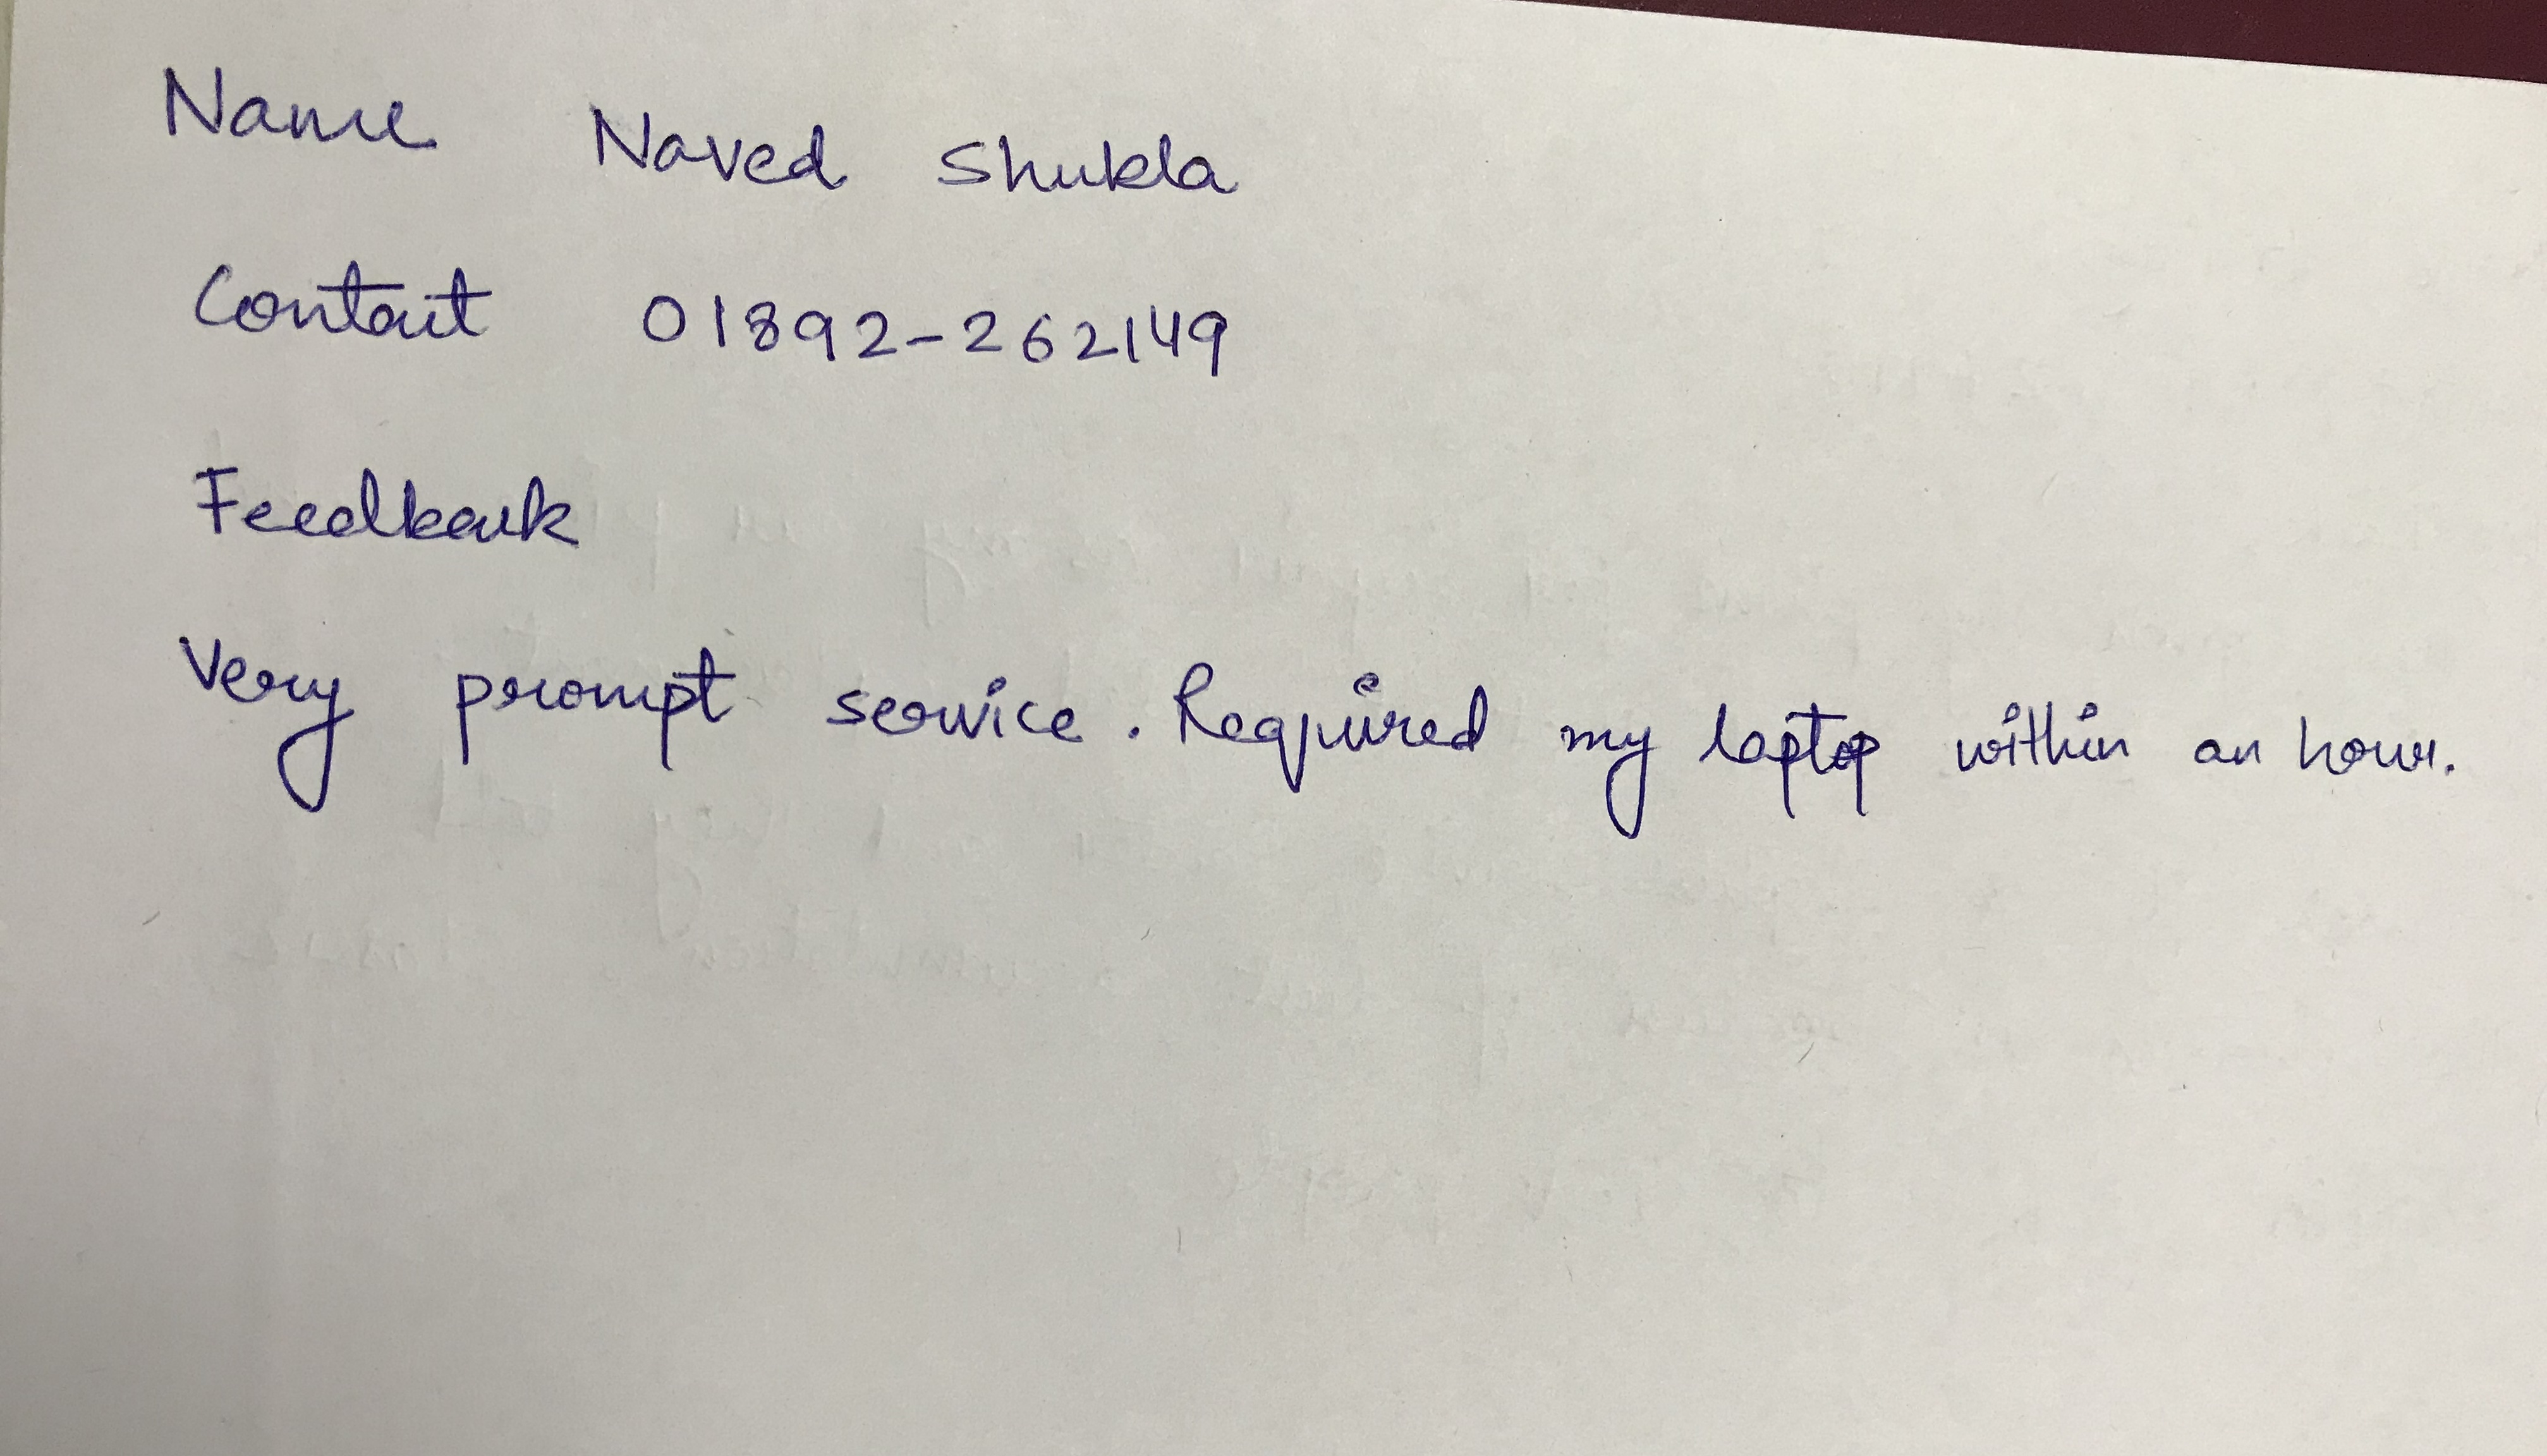 Name Naved Shukla
Contact 01892-262149
Feedback
Very prompt service. Required my laptop within an hour.